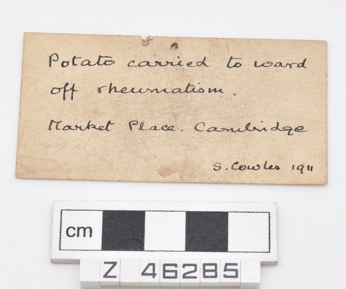 Potato carried to ward
off rheumatism.
Market Place. Cambridge
S. Cowles 1911
cm
Z 46285